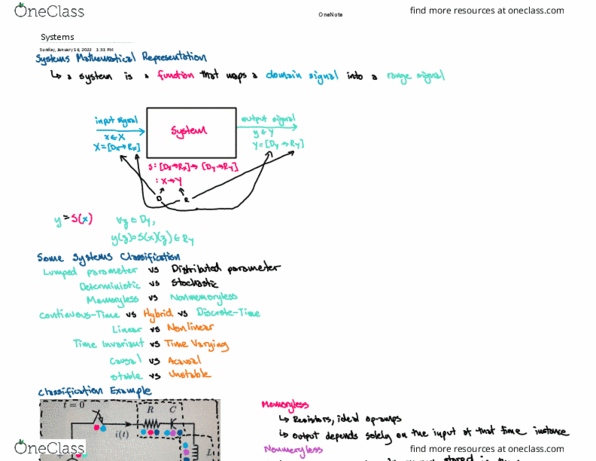 OneClass
OneNote
find more resources at oneclass.com
Systems
Sunday, January 16, 2022 3:33 PM
Systems Mathematical Representation
↳ a system is a function that maps a domain signal into a range signal
input signal
x ∈ X
X = [Dx→Rx]
System
output signal
y ∈ Y
Y = [Dy→Ry]
S: [Dx→Rx] → [Dy→Ry]
: X → Y
D R
y = S(x) ∀z ∈ Dy,
y(z) = S(x)(z) ∈ Ry
Some Systems Classification
Lumped parameter vs Distributed parameter
Deterministic vs Stochastic
Memoryless vs Nonmemoryless
Continuous-Time vs Hybrid vs Discrete-Time
Linear vs Nonlinear
Time Invariant vs Time Varying
Causal vs Acausal
Stable vs Unstable
Classification Example
t = 0
R C
i(t)
L
Memoryless
↳ Resistors, ideal op-amps
↳ output depends solely on the input of that time instance
Nonmemoryless
stored in
OneClass
find more resources at oneclass.com